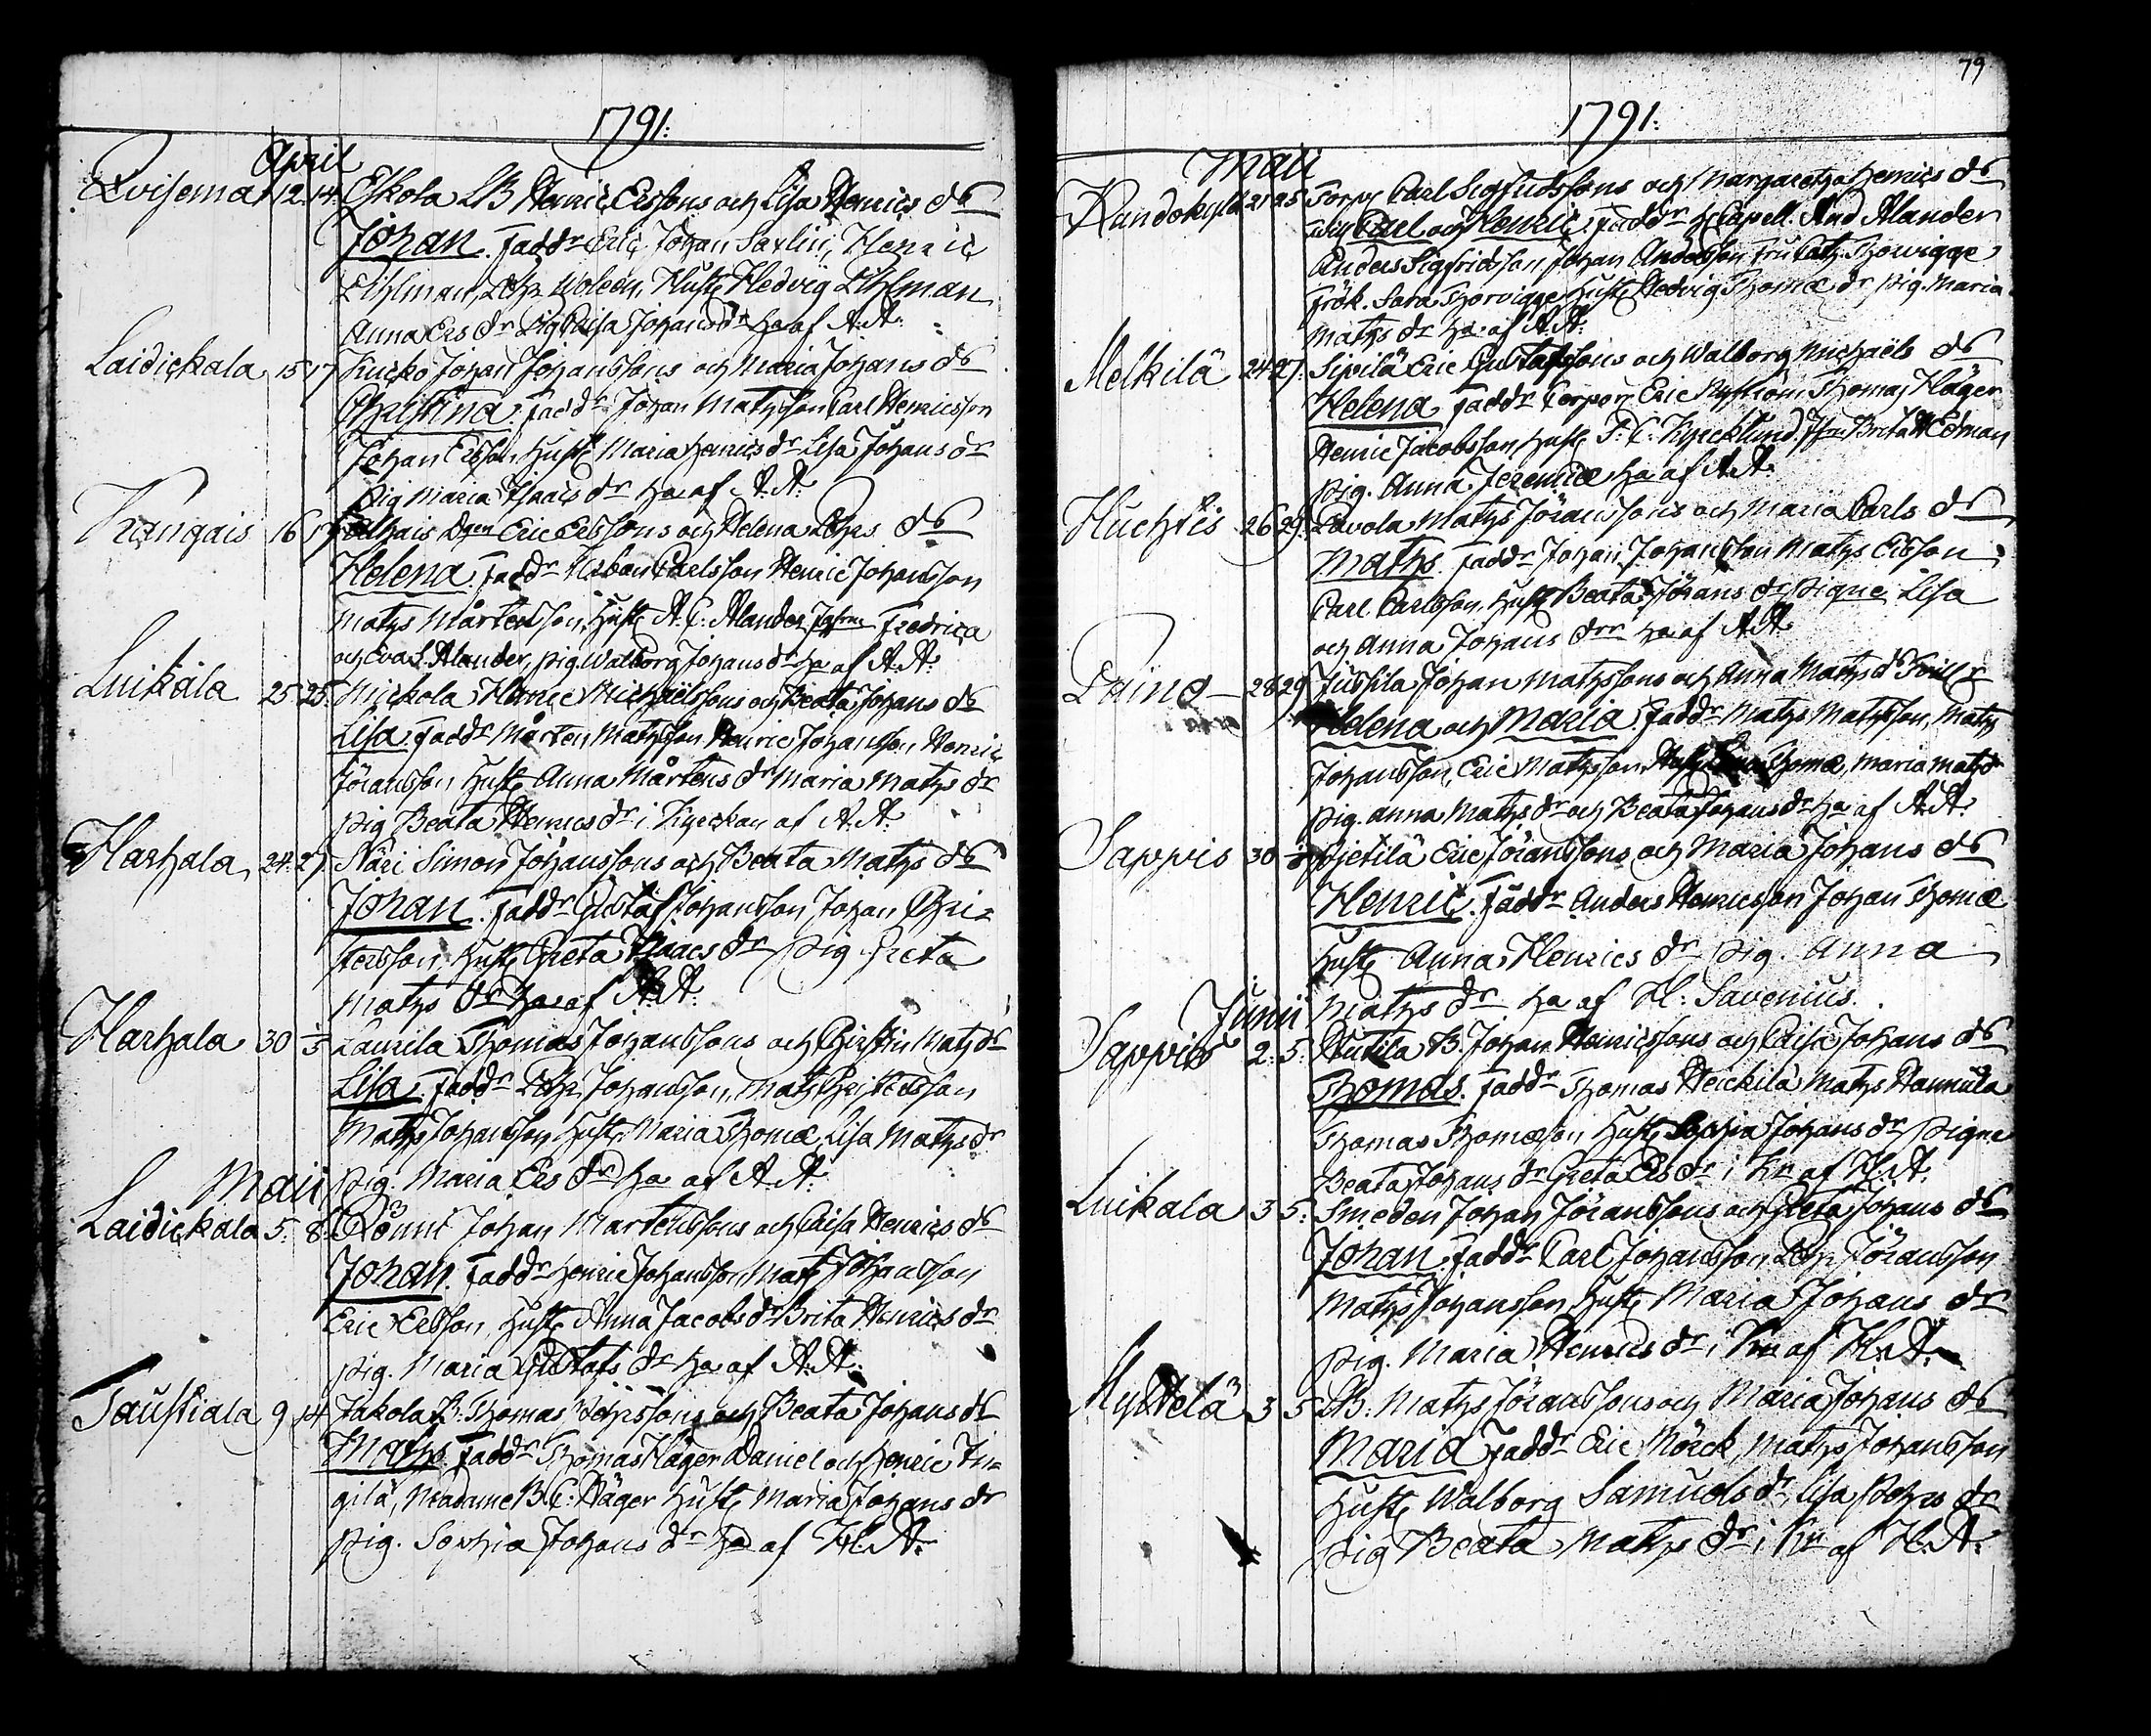 1791:
April
Qvisema 12. 14. Eskola LB Henric Erssons och Lisa Henrics dr
Johan. Faddr Eric, Johan Saxlin, Henric
Lihlman, Hust. Hedvig Lihlman
Anna Ers dr Pig. Caisa Johans dr ha af A. A:
Laidickala 15 17 Kucko Johan Johanssons och Maria Johans dr
Christina. Faddr Johan Matsson Carl Henricsson
Johan Ersson, Hust. Maria Henrics dr Lisa Johans dr
pig Maria Isacs dr ha af A. A:
Kangais 16 17 Eric Erssons och Helena dr
Helena. Faddr Urban Carlsson Henric Johansson
Mats Mårtensson, Hust. A. C: Alander Jfru Fredrica
och Eva S. Alander, pig. Walborg Johans dr ha af A. A:
Luikala 25 25. Mickola Henric Michaëlssons och Beata Johans dr
Lisa. Faddr Mårten Matsson Henric Johansson Henric
Jöransson Hust. Anna Mårtens dr Maria Mats dr
pig Beata Henrics dr i Kyrckan af A. A:
Harhala, 24. 27. Näri Simon Johanssons och Beata Mats dr
Johan. Faddr Gustaf Johansson, Johan Chri=
stersson, Hust. Greta Isaacs dr pig. Greta
Mats dr ha af A. A:
Harhala 30 1/5 Laurila Thomas Johanssons och Christin Mats dr
Lisa. Faddr Johansson, Mats Christersson
Mats Johansson Hust. Maria Thomæ, Lisa Mats dr
pig. Maria Ers dr ha af A. A:
Maii
Laidickala 5. 8. Rönni Johan Mårtenssons och Caisa Henrics dr
Johan. Faddr Henric Johansson, Mats Johansson
Eric Ersson, Hust. Anna Jacobs dr Brita Henrics dr
pig. Maria Gustafs dr ha af A. A:
Taustiala 9 14 Jakola B: Thomas och Beata Johans dr
Mats. Faddr Thomas Häger Daniel och Henric Tin=
gilä, Madame B. C: Häger Hust. Maria Johans dr
pig. Sophia Johans dr ha af H. A:
79
1791:
Maii
Randokylä 21 25 Torp. Carl Sigfridssons och Margaretha Henrics dr
Carl och Henric. Faddr H. Capell. And Alander
Anders Sigfridsson Johan Andersson Fru Cath. Thorwigge
Frök. Sara Thorwigge Hust. Hedvig Thomæ dr pig. Maria
Mats dr ha af A. A:
Melkilä 24 27. Sipilä Eric Gustafssons och Walborg Michaëls dr
Helena Faddr Corpor. Eric Nyström Thomas Häger
Henric Jacobsson, Hust. F: C: Kyrcklund, Jfru Brita Edman
pig. Anna Jeremiæ ha af A. A.
Huchtis 26 29. Pavola Mats Jöranssons och Maria Carls dr
Mats. Faddr Johan Johansson Mats Ersson
Carl Carlsson, Hust. Beata Jörans dr pigne Lisa
och Anna Johans drr ha af A. A:
Paino 28 29 Jussila Johan Matssons och Anna Mats dr
Helena och Maria Faddr Mats Matsson, Mats
Johansson, Eric Matsson, Hust. Thomæ, Maria Mats dr
pig. Anna Mats dr och Beata Johans dr ha af A. A:
Sappis 30 Pjetilä Eric Jöranssons och Maria Johans dr
Henric. Faddr Anders Henricsson Johan Thomæ
Hust. Anna Henrics dr pig. Anna
Mats dr ha af H: Savenius.
Junii
Sappis 2. 5. Hutila B. Johan Henricssons och Caisa Johans dr
Thomas. Faddr Thomas Heickilä Mats Hannula
Thomas Thomasson Hust. Sophia Johans dr pigne
Beata Johans dr Greta Ers dr i Kn af H. A:
Luikala 3 5. Smeden Johan Jöranssons och Greta Johans dr
Johan. Faddr Carl Johansson Jöransson
Mats Johansson Hust. Maria Johans dr
pig. Maria Henrics dr i Kn af H. A:
Myttelä 3 5 LB. Mats Jöranssons och Maria Johans dr
Maria Faddr Eric Mörck, Mats Johansson
Hust. Walborg Samuels dr, Lisa dr
pig Beata Mats dr i Kn af H. A: